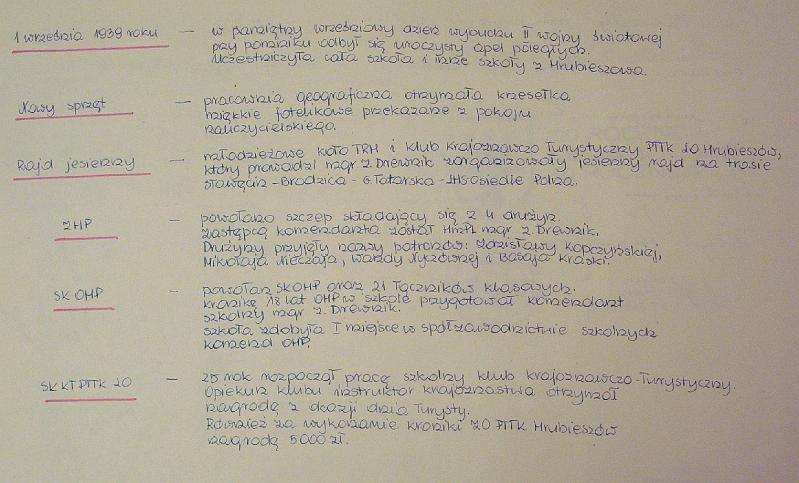 1 września 1939 roku — w pamiętny wrześniowy dzień wybuchu II wojny światowej
przy pomniku odbył się uroczysty apel poległych.
Uczestniczyła cała szkoła i inne szkoły z Hrubieszowa.
Nowy sprzęt — pracownia geograficzna otrzymała krzesełka
miękkie fotelikowe przekazane z pokoju
nauczycielskiego.
Rajd jesienny — młodzieżowe koło TRH i klub Krajoznawczo Turystyczny PTTK ZO Hrubieszów,
który prowadzi mgr Z. Drewnik zorganizowały jesienny rajd na trasie
Sławęcin - Brodzica - G. Tatarska - Osiedle Polna.
ZHP — powołano szczep składający się z 4 drużyn.
Zastępcą komendanta został mgr Z. Drewnik.
Drużyny przyjęły nazwy patronów: Zdzisławy Kopczyńskiej,
Mikołaja Nieczaja, Wandy i Basaja Kraski.
SK OHP — powołano SKOHP oraz 21 łączników klasowych.
Kronikę 18 lat OHP w szkole przygotował komendant
szkolny mgr Z. Drewnik.
Szkoła zdobyła I miejsce w społzawodnictwie szkolnych
komend OHP.
SK KT PTTK ZO — 25 rok rozpoczął pracę szkolny klub krajoznawczo-Turystyczny.
Opiekun klubu instruktor krajoznastwa otrzymał
nagrodę z okazji dnia Turysty.
Również za wykonanie kroniki ZO PTTK Hrubieszów
nagrodę 5000 zł.